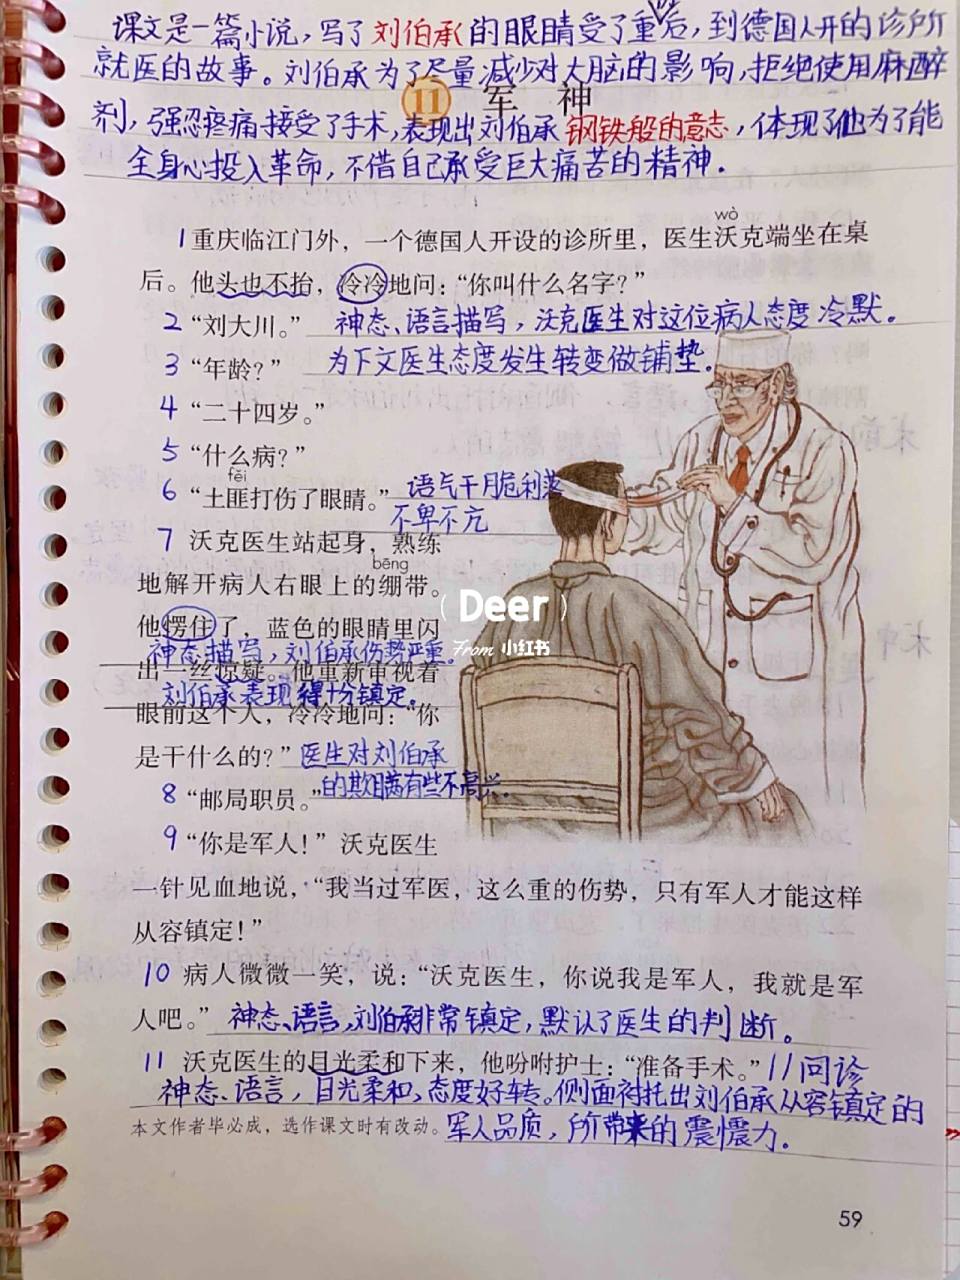 课文是一篇小说，写了刘伯承的眼睛受了重后，到德国人开的诊所
就医的故事。刘伯承为了尽量减少对大脑的影响，拒绝使用麻醉
11 军神
剂，强忍疼痛接受了手术，表现出刘伯承钢铁般的意志，体现了他为了能
全身心投入革命，不惜自己承受巨大痛苦的精神。
wò
1重庆临江门外，一个德国人开设的诊所里，医生沃克端坐在桌
后。他头也不抬，冷冷地问：“你叫什么名字？”
2“刘大川。” 神态、语言描写，沃克医生对这位病人态度冷默。
3“年龄？” 为下文医生态度发生转变做铺垫。
4“二十四岁。”
5“什么病？”
fěi
6“土匪打伤了眼睛。” 语气干脆利落
不卑不亢
7 沃克医生站起身，熟练
bēng
地解开病人右眼上的绷带。
(Deer)
他愣住了，蓝色的眼睛里闪
From 小红书
神态描写，刘伯承伤势严重。
出一丝惊疑。他重新审视着
刘伯承表现得十分镇定。
眼前这个人，冷冷地问：“你
是干什么的？” 医生对刘伯承
8“邮局职员。” 的欺瞒有些不高兴。
9“你是军人！”沃克医生
一针见血地说，“我当过军医，这么重的伤势，只有军人才能这样
从容镇定！”
10 病人微微一笑，说：“沃克医生，你说我是军人，我就是军
人吧。” 神态、语言，刘伯承非常镇定，默认了医生的判断。
11 沃克医生的目光柔和下来，他吩咐护士：“准备手术。”//问诊
神态、语言，目光柔和，态度好转。侧面衬托出刘伯承从容镇定的
本文作者毕必成，选作课文时有改动。 军人品质，所带来的震慑力。
59
术前
术中